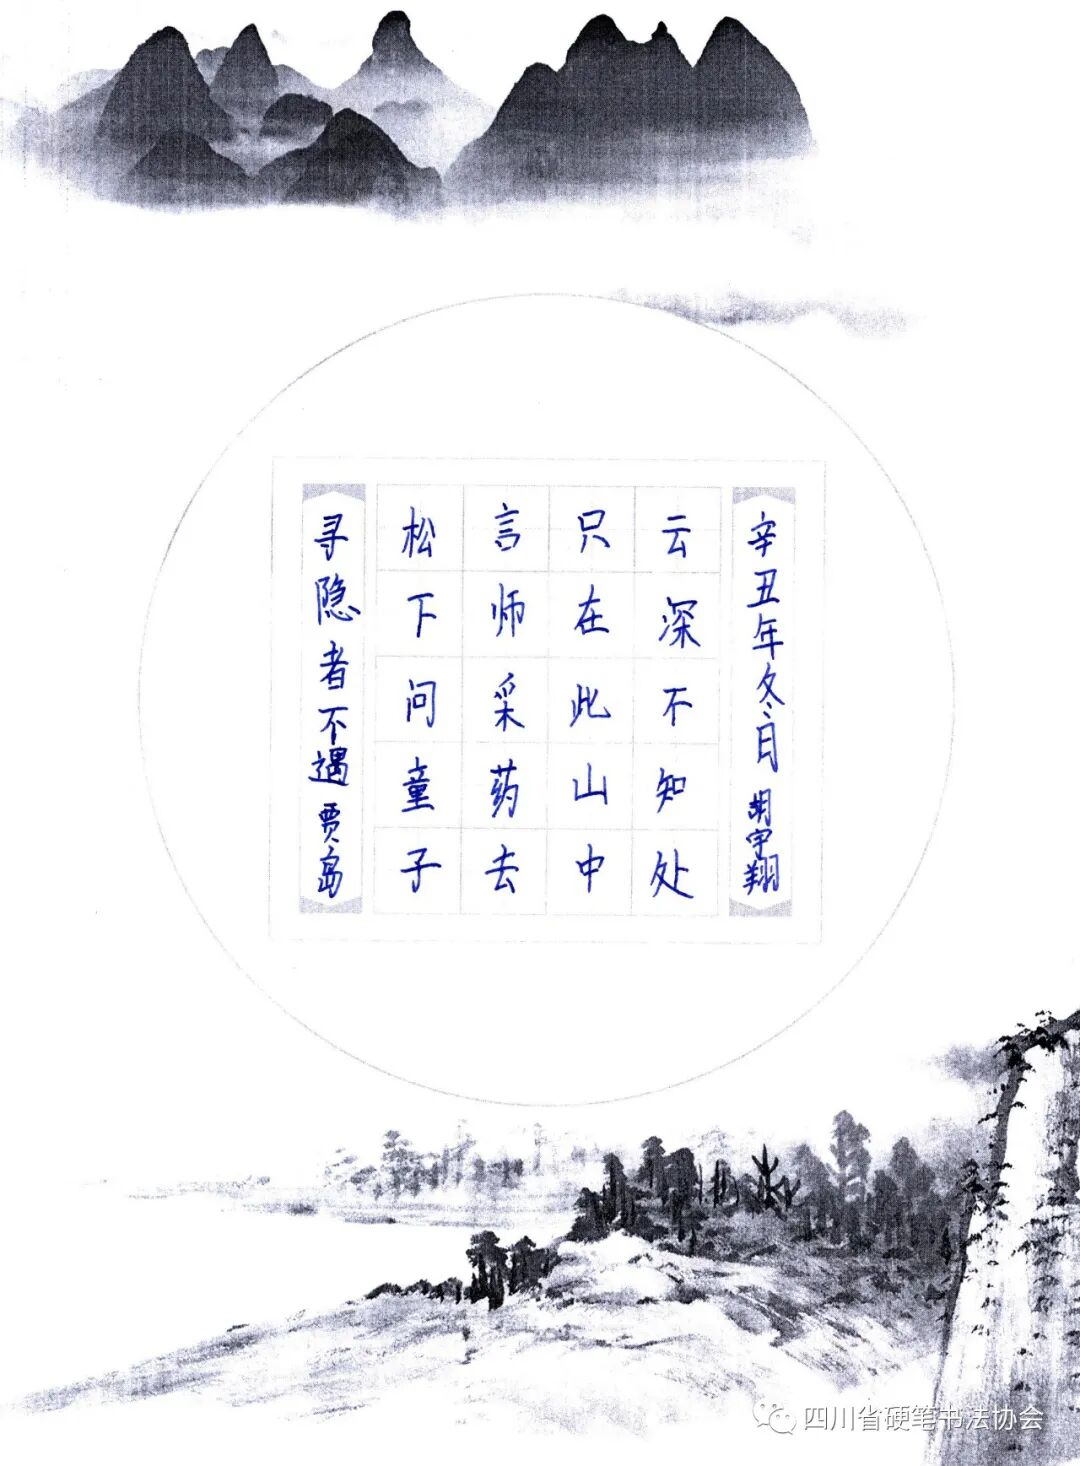 寻隐者不遇 贾岛
松下问童子
言师采药去
只在此山中
云深不知处
辛丑年冬日 胡宇翔
四川省硬笔书法协会